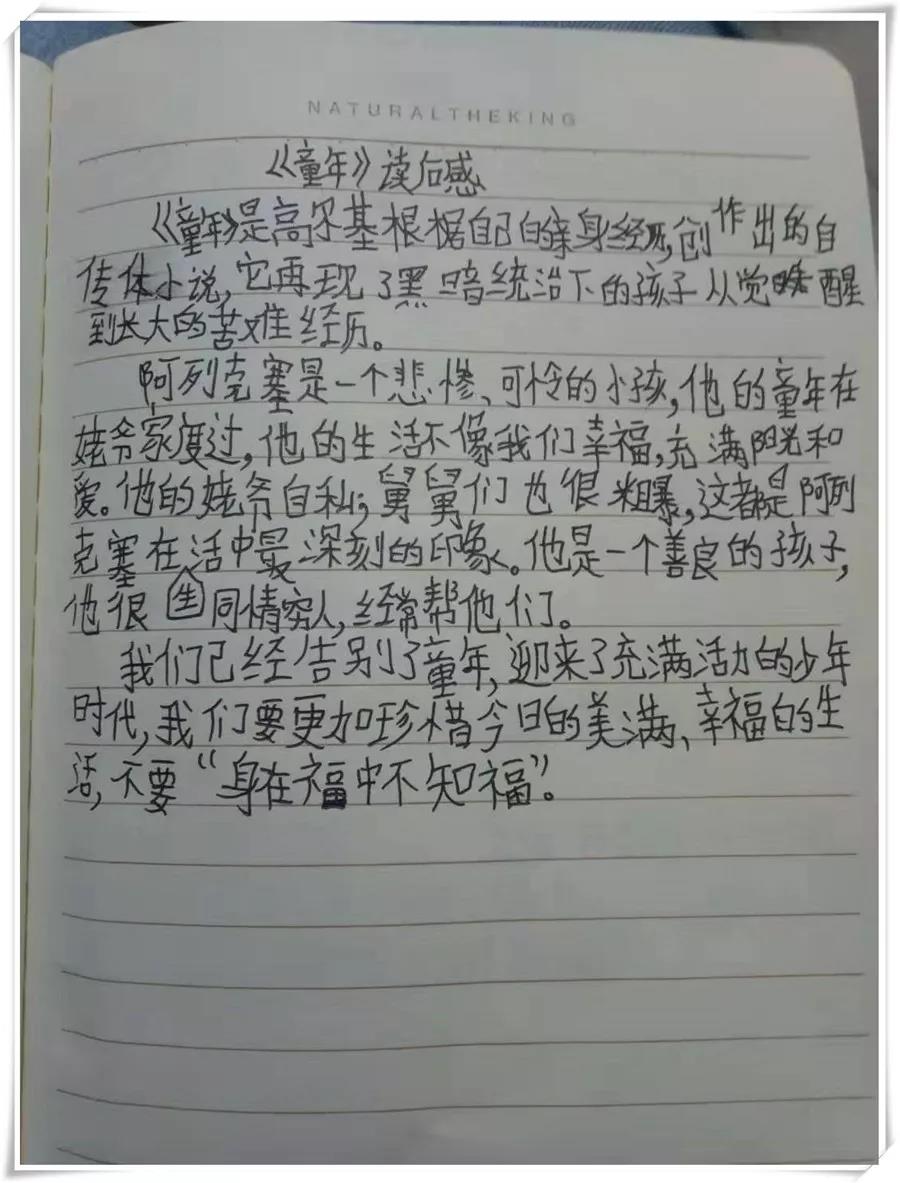 NATURALTHEKING
《童年》读后感
《童年》是高尔基根据自己的亲身经历,创作出的自
传体小说,它再现了黑暗统治下的孩子从觉醒
到长大的苦难经历。
阿列克塞是一个悲惨、可怜的小孩,他的童年在
姥爷家度过,他的生活不像我们幸福,充满阳光和
爱。他的姥爷自私;舅舅们也很粗暴,这都是阿列
克塞在生活中最深刻的印象。他是一个善良的孩子,
他很同情穷人,经常帮他们。
我们已经告别了童年,迎来了充满活力的少年
时代,我们要更加珍惜今日的美满、幸福的生
活,不要“身在福中不知福”。